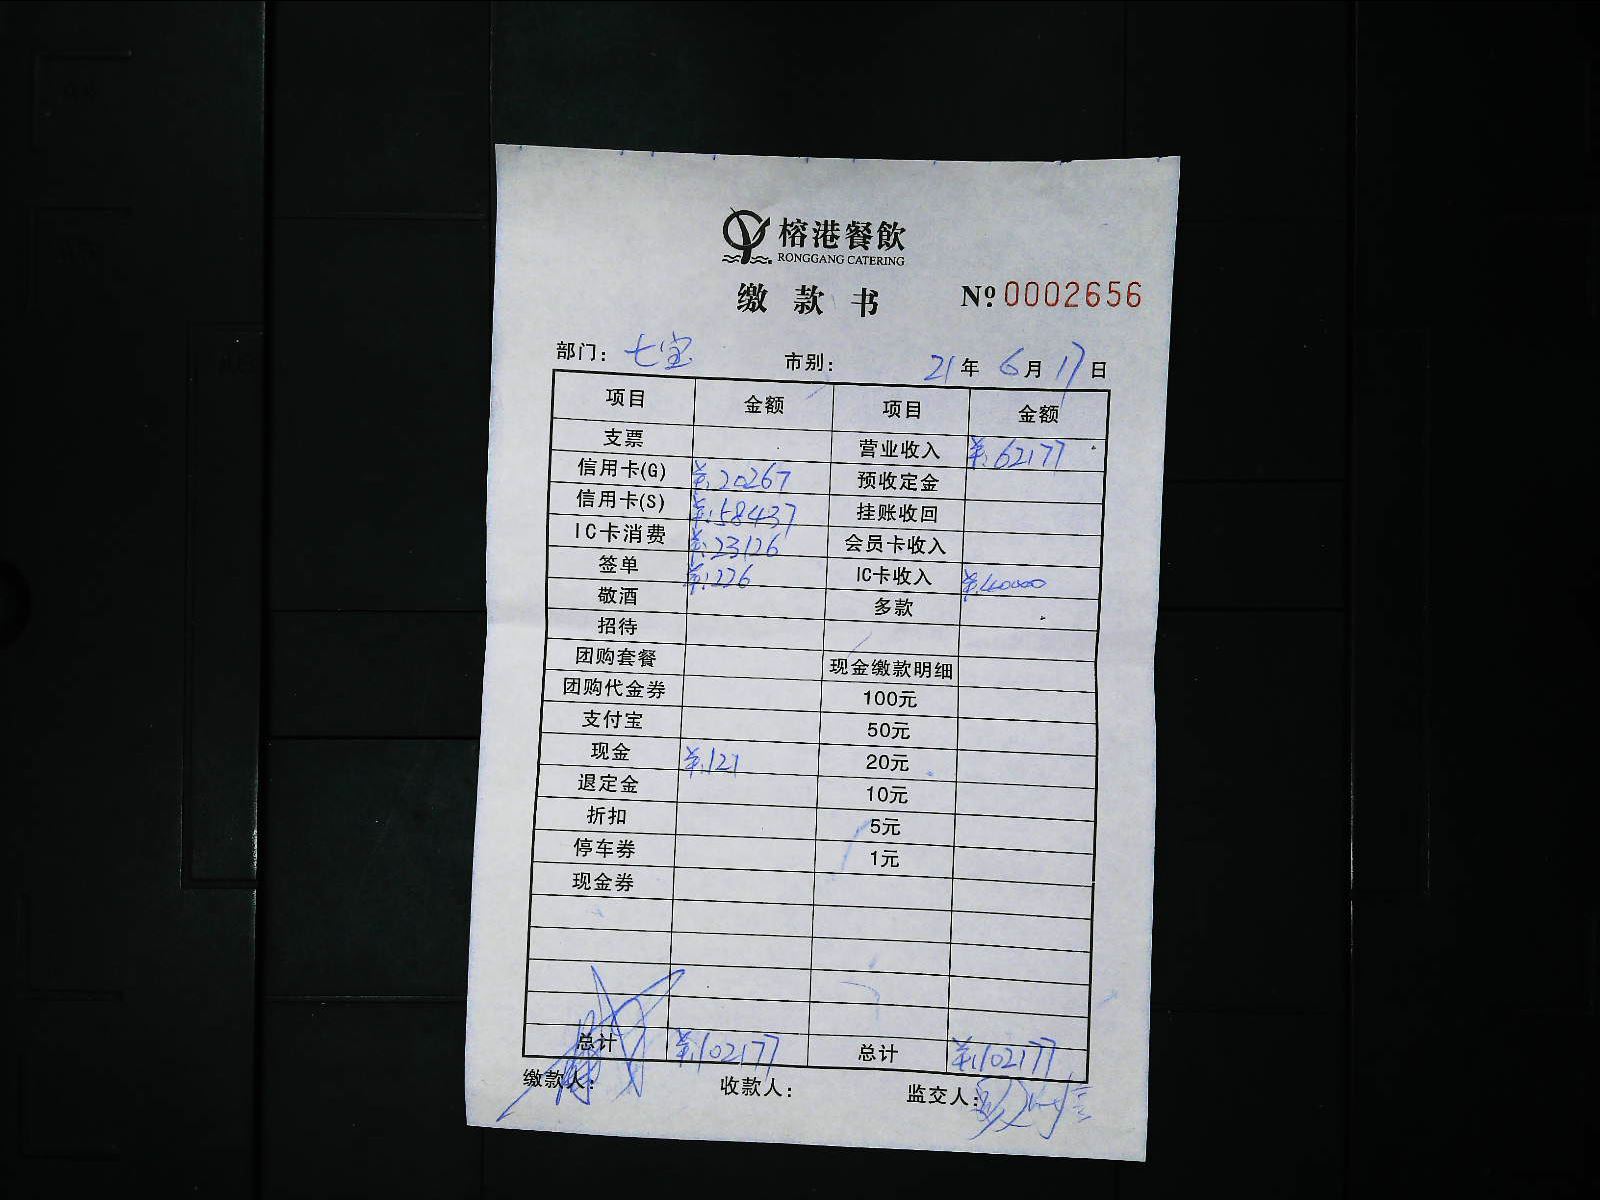 榕港餐飲
RONGGANG CATERING
缴款书 Nº 0002656
部门: 七宝 市别: 21年 6月 17日
项目 金额 项目 金额
支票 营业收入 ¥:62177
信用卡(G) ¥:20267 预收定金
信用卡(S) ¥:58437 挂账收回
IC卡消费 ¥:23126 会员卡收入
签单 ¥:226 IC卡收入 ¥:40000
敬酒 多款
招待
团购套餐 现金缴款明细
团购代金券 100元
支付宝 50元
现金 ¥:121 20元
退定金 10元
折扣 5元
停车券 1元
现金券
总计 ¥:102177 总计 ¥:102177
缴款人: 收款人: 监交人: